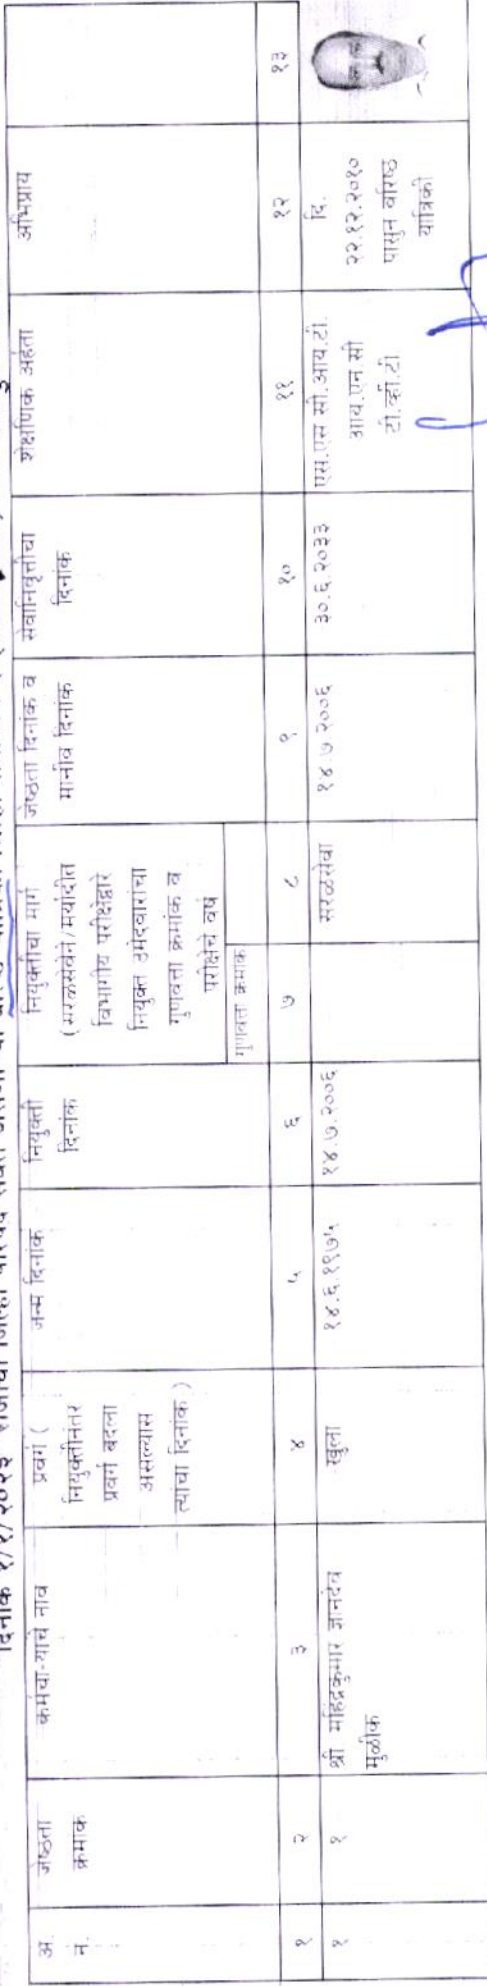 दिनांक १/१/२०२३ रोजीची जिल्हा परिषद
अ.
नं.
जेष्ठता
क्रमांक
कर्मचा-याचे नाव
प्रवर्ग (
नियुक्तीनंतर
प्रवर्ग बदला
असल्यास
त्याचा दिनांक )
जन्म दिनांक
नियुक्ती
दिनांक
नियुक्तीचा मार्ग
(सरळसेवेने/मर्यादीत
विभागीय परीक्षेद्वारे
नियुक्त उमेदवारांचा
गुणवत्ता क्रमांक व
परीक्षेचे वर्ष
गुणवत्ता क्रमांक
जेष्ठता दिनांक व
मानीव दिनांक
सेवानिवृत्तीचा
दिनांक
शैक्षणिक अर्हता
अभिप्राय
१ २ ३ ४ ५ ६ ७ ८ ९ १० ११ १२ १३
१
१
श्री महिंद्रकुमार ज्ञानदेव
मुळीक
खुला
१४.६.१९७५
१४.७.२००६
सरळसेवा
१४.७ २००६
३०.६.२०३३
एस.एस सी.आय.टी.
आय.एन सी
टी.व्ही.टी
दि.
२२.१२.२०१०
पासुन वरिष्ठ
यांत्रिकी